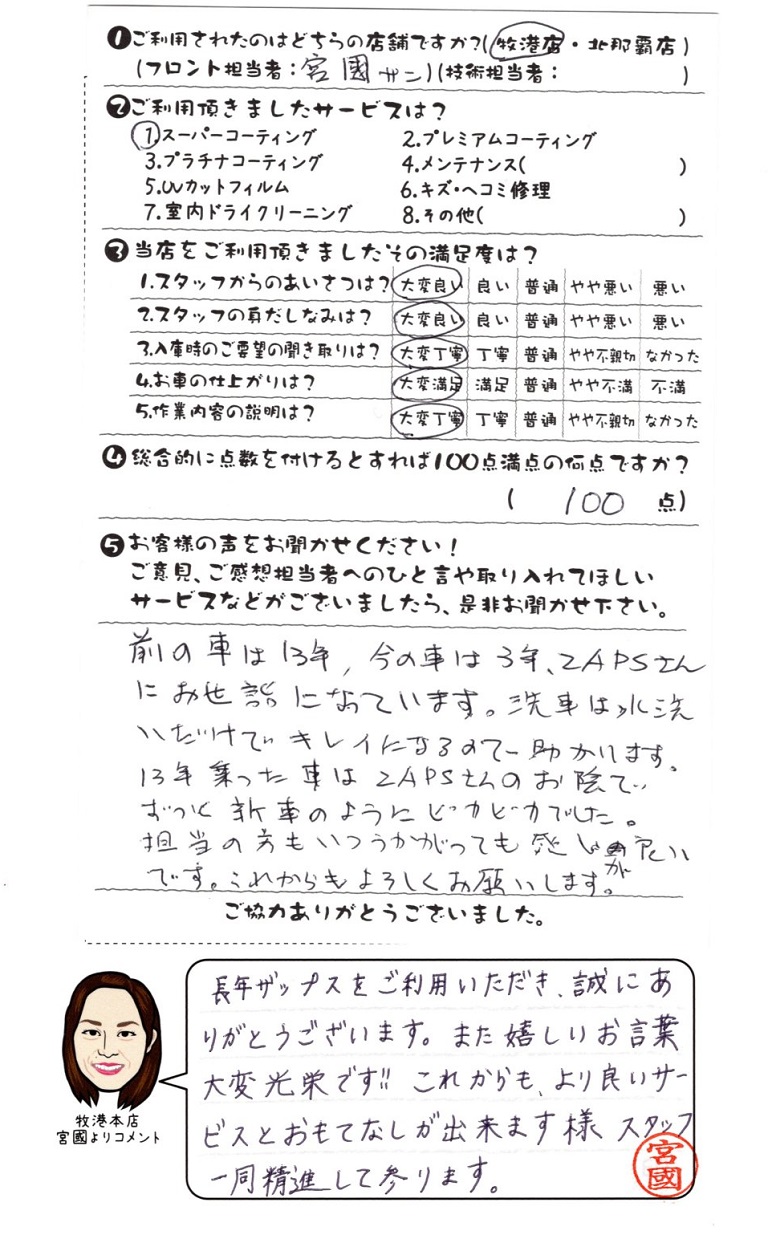 ❶ご利用されたのはどちらの店舗ですか?(牧港店・北那覇店)
(フロント担当者:宮國サン)(技術担当者: )
❷ご利用頂きましたサービスは?
1.スーパーコーティング 2.プレミアムコーティング
3.プラチナコーティング 4.メンテナンス( )
5.UVカットフィルム 6.キズ・ヘコミ修理
7.室内ドライクリーニング 8.その他( )
❸当店をご利用頂きましたその満足度は?
1.スタッフからのあいさつは? 大変良い 良い 普通 やや悪い 悪い
2.スタッフの身だしなみは? 大変良い 良い 普通 やや悪い 悪い
3.入庫時のご要望の聞き取りは? 大変丁寧 丁寧 普通 やや不親切 なかった
4.お車の仕上がりは? 大変満足 満足 普通 やや不満 不満
5.作業内容の説明は? 大変丁寧 丁寧 普通 やや不親切 なかった
❹総合的に点数を付けるとすれば100点満点の何点ですか?
( 100 点)
❺お客様の声をお聞かせください!
ご意見、ご感想担当者へのひと言や取り入れてほしい
サービスなどがございましたら、是非お聞かせ下さい。
前の車は13年,今の車は3年、ZAPSさん
にお世話になっています。洗車は水洗
いだけでキレイになるので助かります。
13年乗った車はZAPSさんのお陰で
ずっと新車のようにピカピカでした。
担当の方もいつうかがっても感じが良い
です。これからもよろしくお願いします。
ご協力ありがとうございました。
長年ザップスをご利用いただき、誠にあ
りがとうございます。また嬉しいお言葉
大変光栄です!! これからも、より良いサー
ビスとおもてなしが出来ます様 スタッフ
一同精進して参ります。
宮國
牧港本店
宮國よりコメント